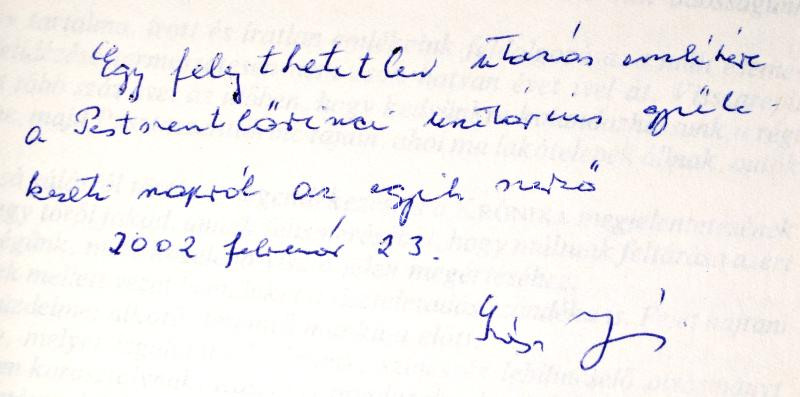 Egy felejthetetlen utazás emlékére
a Pestszentlőrinci unitárius gyüle-
kezeti napról az egyik szerző
2002 február 23.